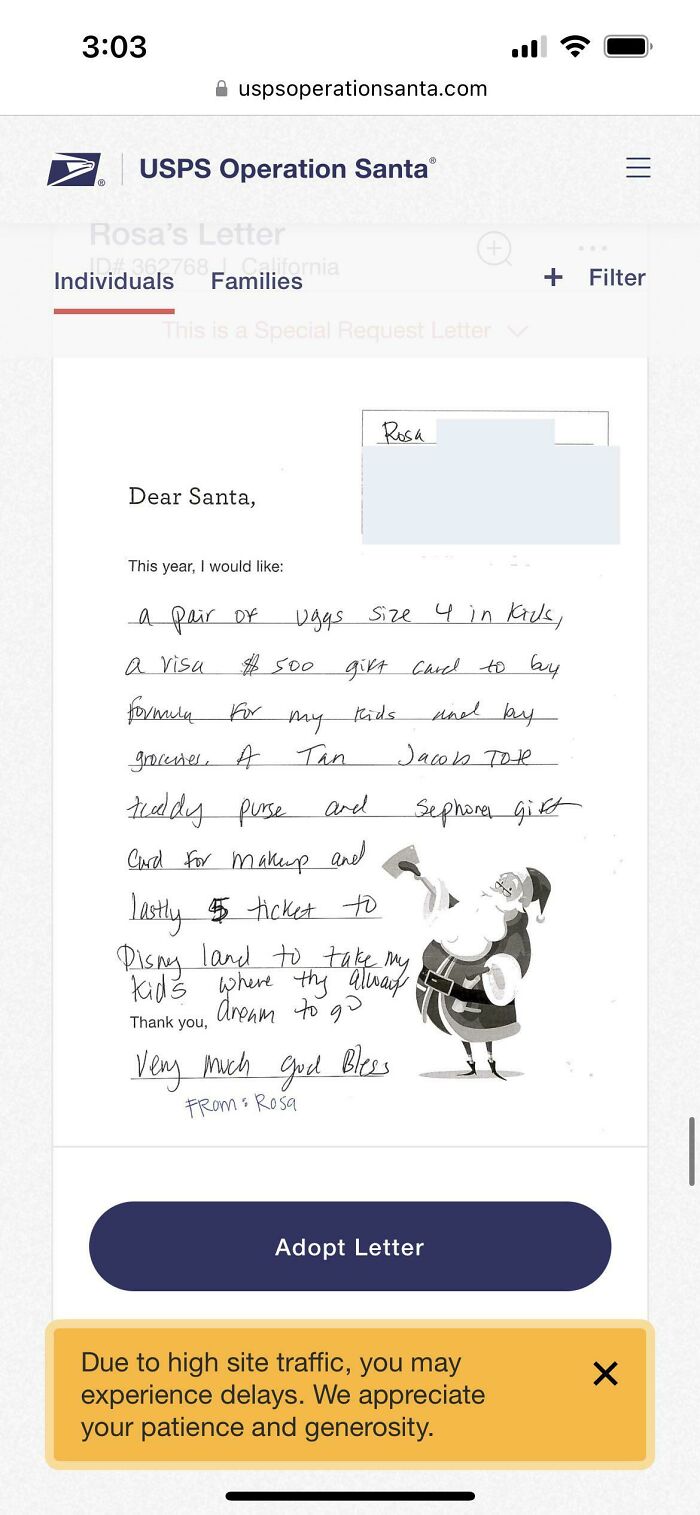 3:03
uspsoperationsanta.com
USPS Operation Santa®
Rosa's Letter
ID# 362768 | California
Individuals Families + Filter
This is a Special Request Letter
Rosa
Dear Santa,
This year, I would like:
a pair of uggs size 4 in kids,
a visa $500 gift card to by
formula for my kids and by
groceries. A Tan Jacobs Tote
teddy purse and Sephora gift
Card for makeup and
lastly 5 ticket to
Disny land to take my
kids where thy always
dream to go
Thank you,
Very much god Bless
FROM: Rosa
Adopt Letter
Due to high site traffic, you may
experience delays. We appreciate
your patience and generosity.